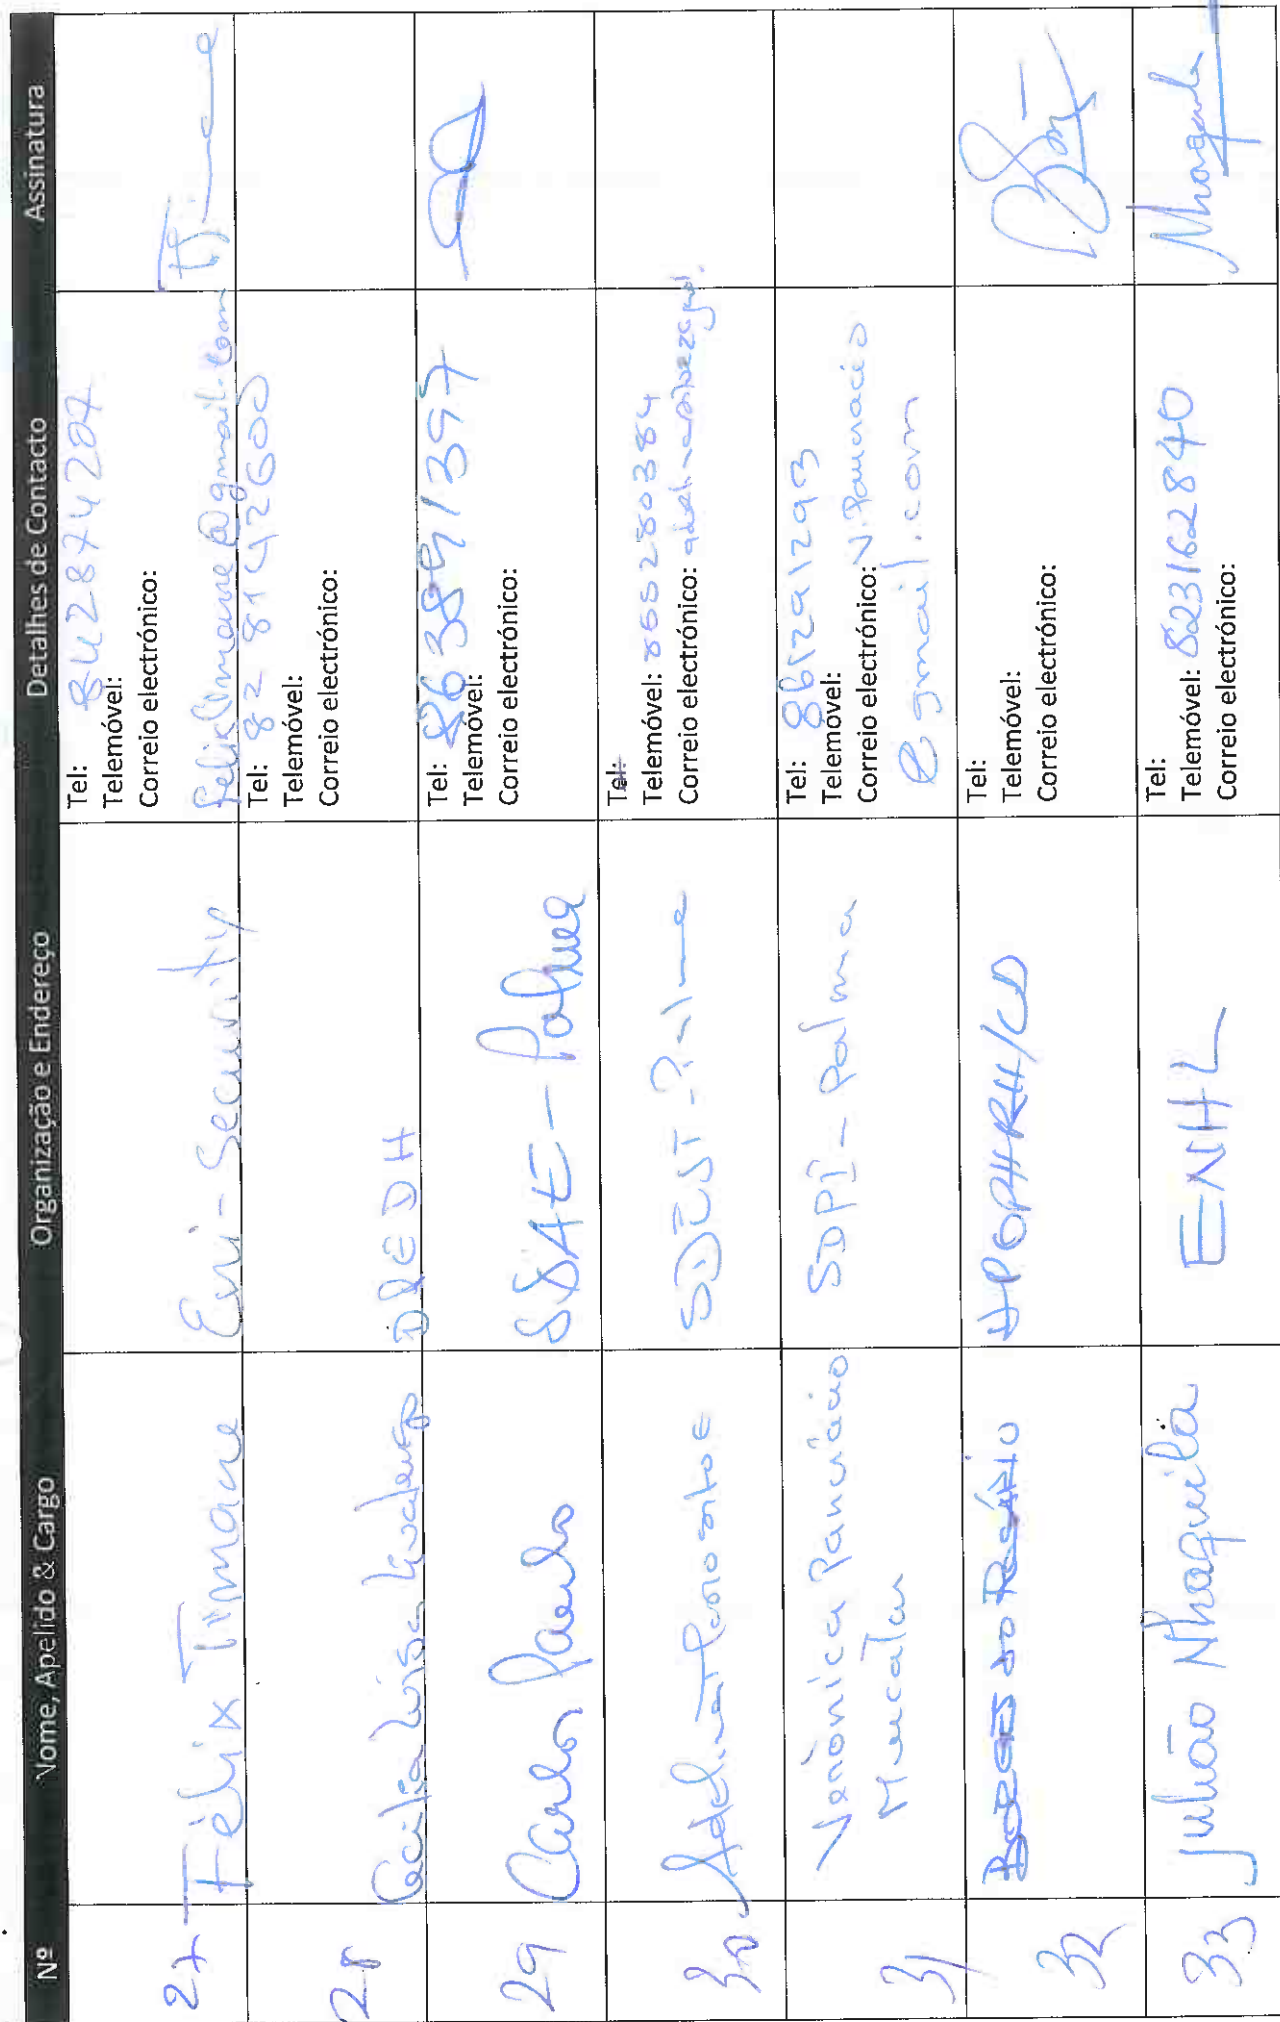 Nº Nome, Apelido & Cargo Organização e Endereço Detalhes de Contacto Assinatura
27 Félix Timane Envi-Security
Tel: 842874207
Telemóvel:
Correio electrónico:
felixtimane@gmail.com
28 Cecília Luisa DREDH
Tel: 82 8142600
Telemóvel:
Correio electrónico:
29 Carlos Paulo SDAE - Palma
Tel: 863891397
Telemóvel:
Correio electrónico:
30 SDEJT - Palma
Tel:
Telemóvel: 855280384
Correio electrónico:
31 Verónica Pancrácio SDPI - Palma
Tel: 861291293
Telemóvel:
Correio electrónico: V.Pancracio
@gmail.com
32 BORGES DO ROSÁRIO DPOPHRH/CD
Tel:
Telemóvel:
Correio electrónico:
33 Julião Nhaquila ENHL
Tel:
Telemóvel: 823162840
Correio electrónico: